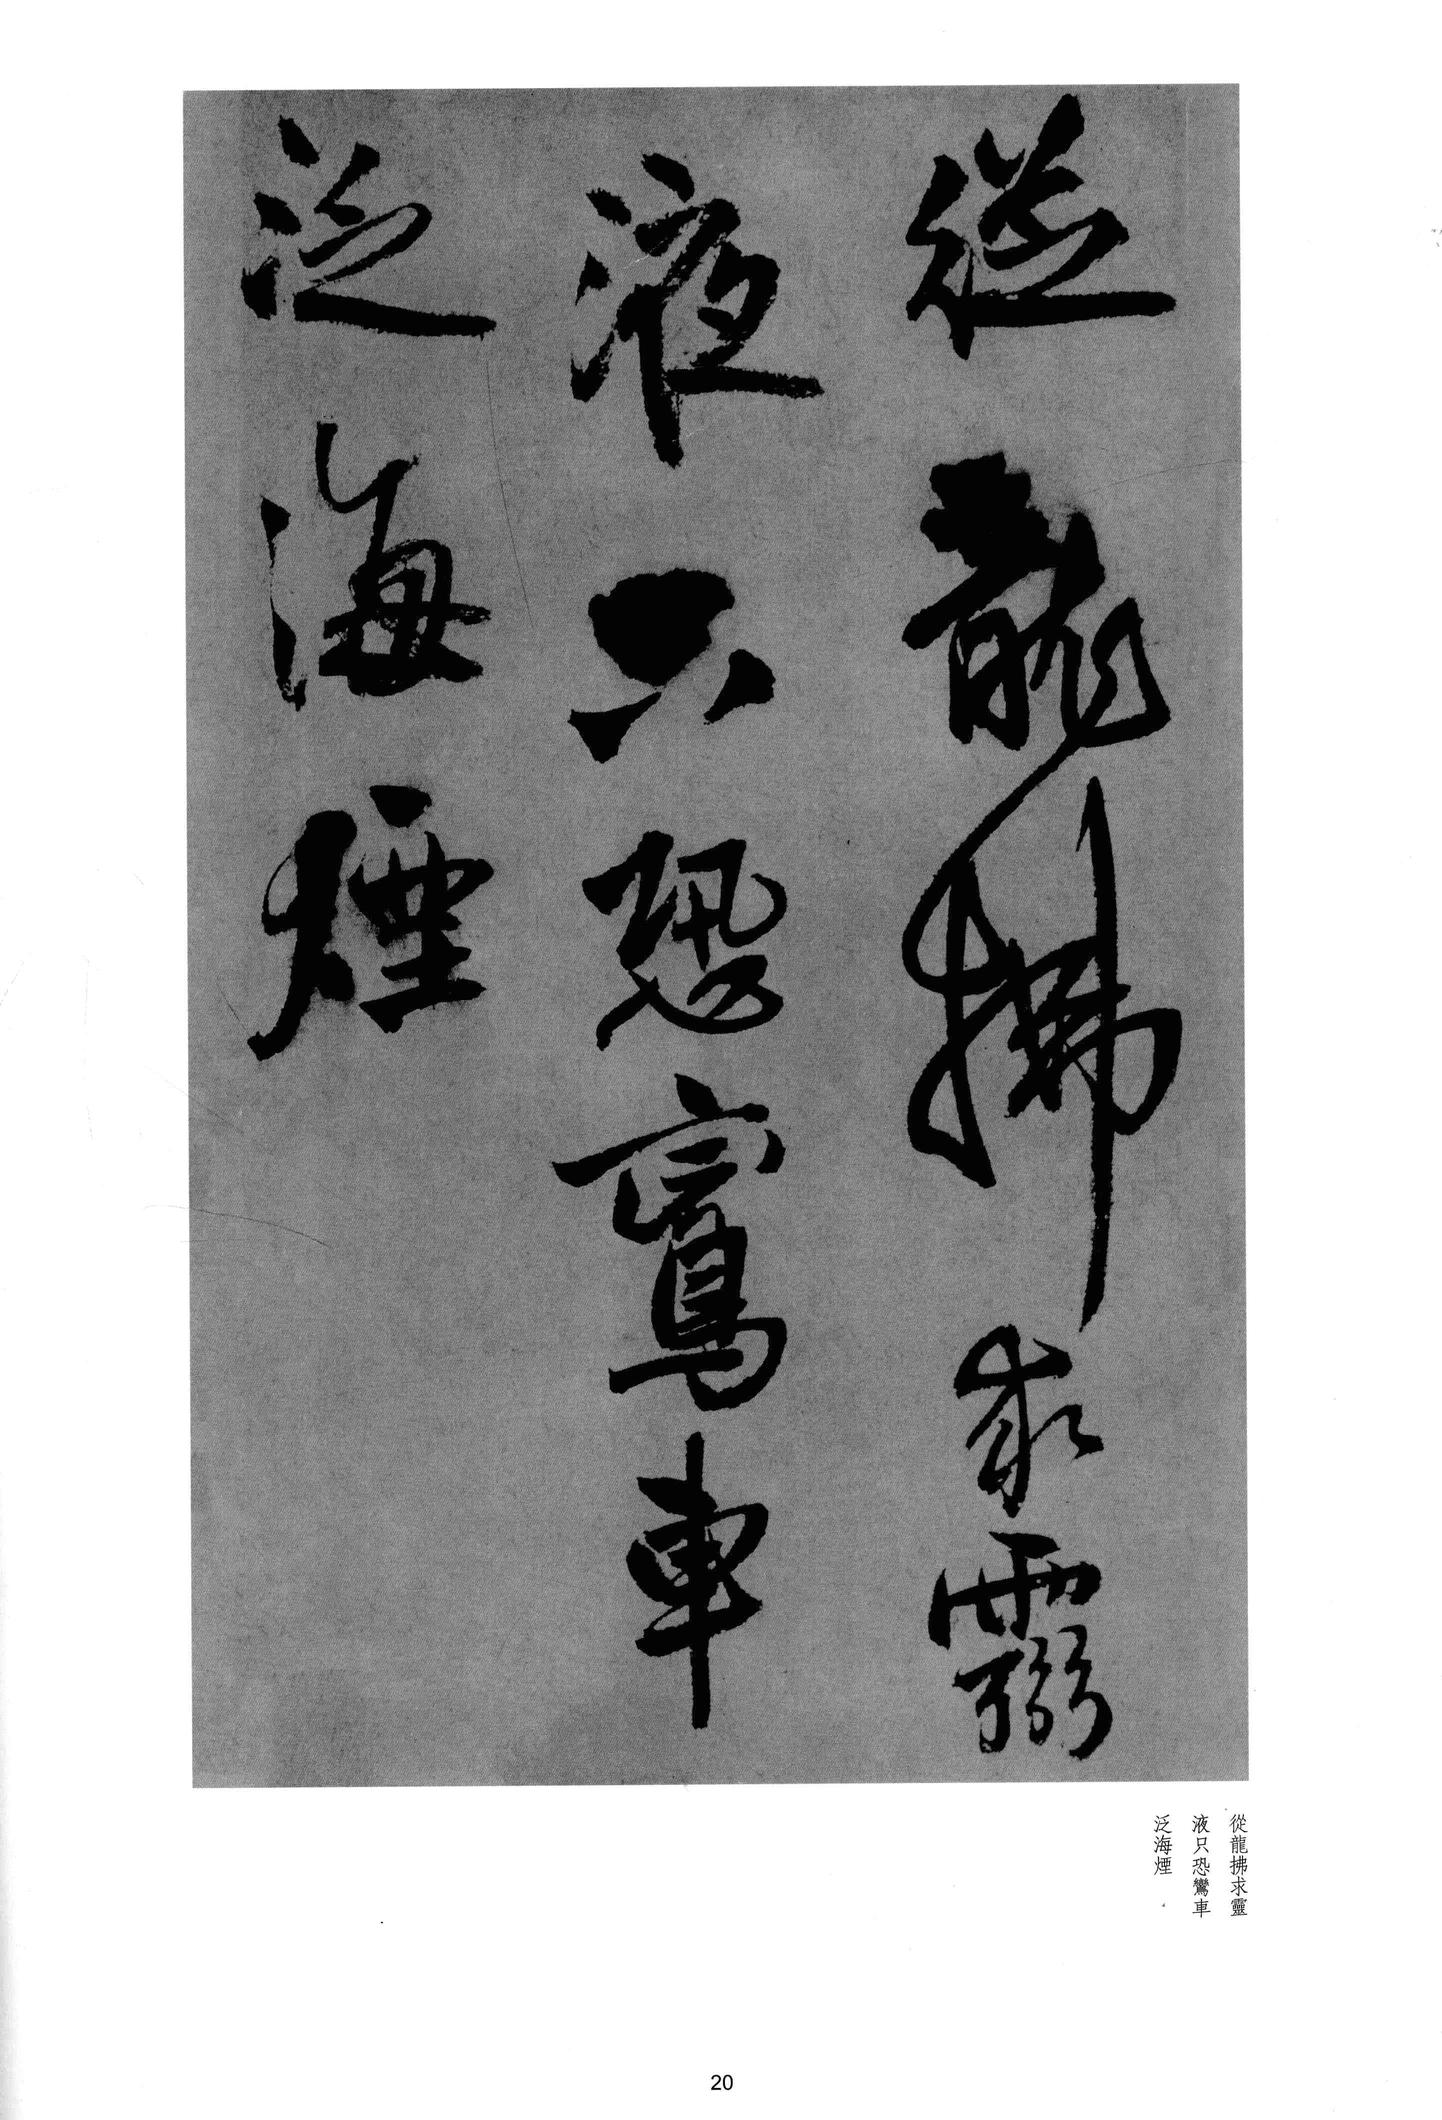 從龍拂求靈
液只恐鸞車
泛海煙
從龍拂求靈
液只恐鸞車
泛海煙
20